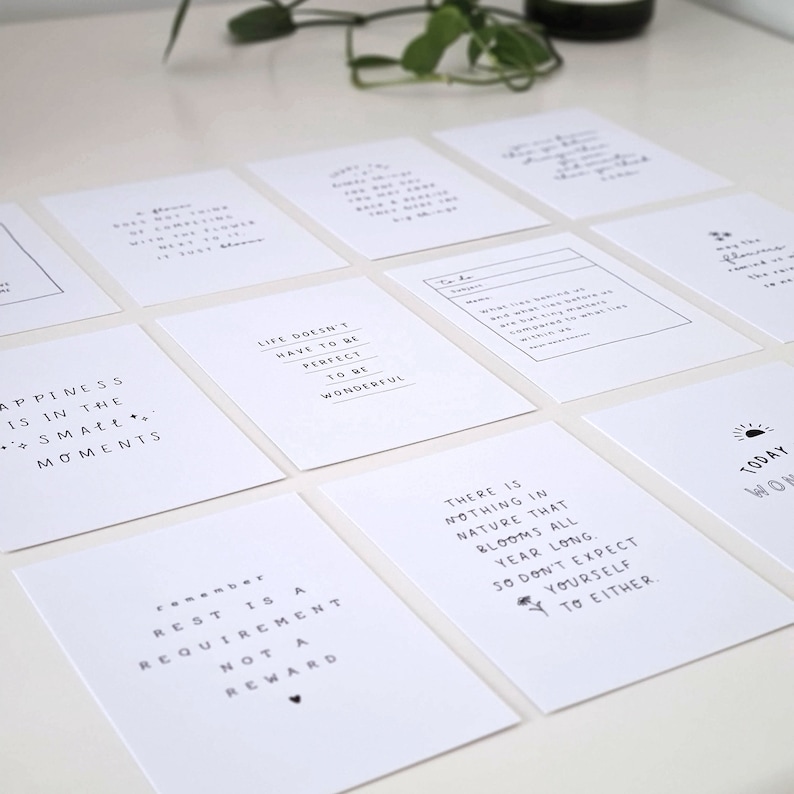 a flower
DOES NOT THINK
OF COMPETING
WITH THE FLOWER
NEXT TO IT.
IT JUST blooms
ENJOY THE
little things
FOR ONE DAY
YOU MAY LOOK
BACK & REALIZE
THEY WERE THE
big things
you are braver
than you believe
stronger than
you seem
and smarter
than you think
may the
flowers
remind us
the rain
so ne
to do
Subject:
Memo:
What lies behind us
and what lies before us
are but tiny matters
compared to what lies
within us.
Ralph Waldo Emerson
LIFE DOESN'T
HAVE TO BE
PERFECT
TO BE
WONDERFUL
APPINESS
IS IN THE
SMALL
MOMENTS
TODAY
WON
THERE IS
NOTHING IN
NATURE THAT
BLOOMS ALL
YEAR LONG.
SO DON'T EXPECT
YOURSELF
TO EITHER.
remember
REST IS A
REQUIREMENT
NOT A
REWARD